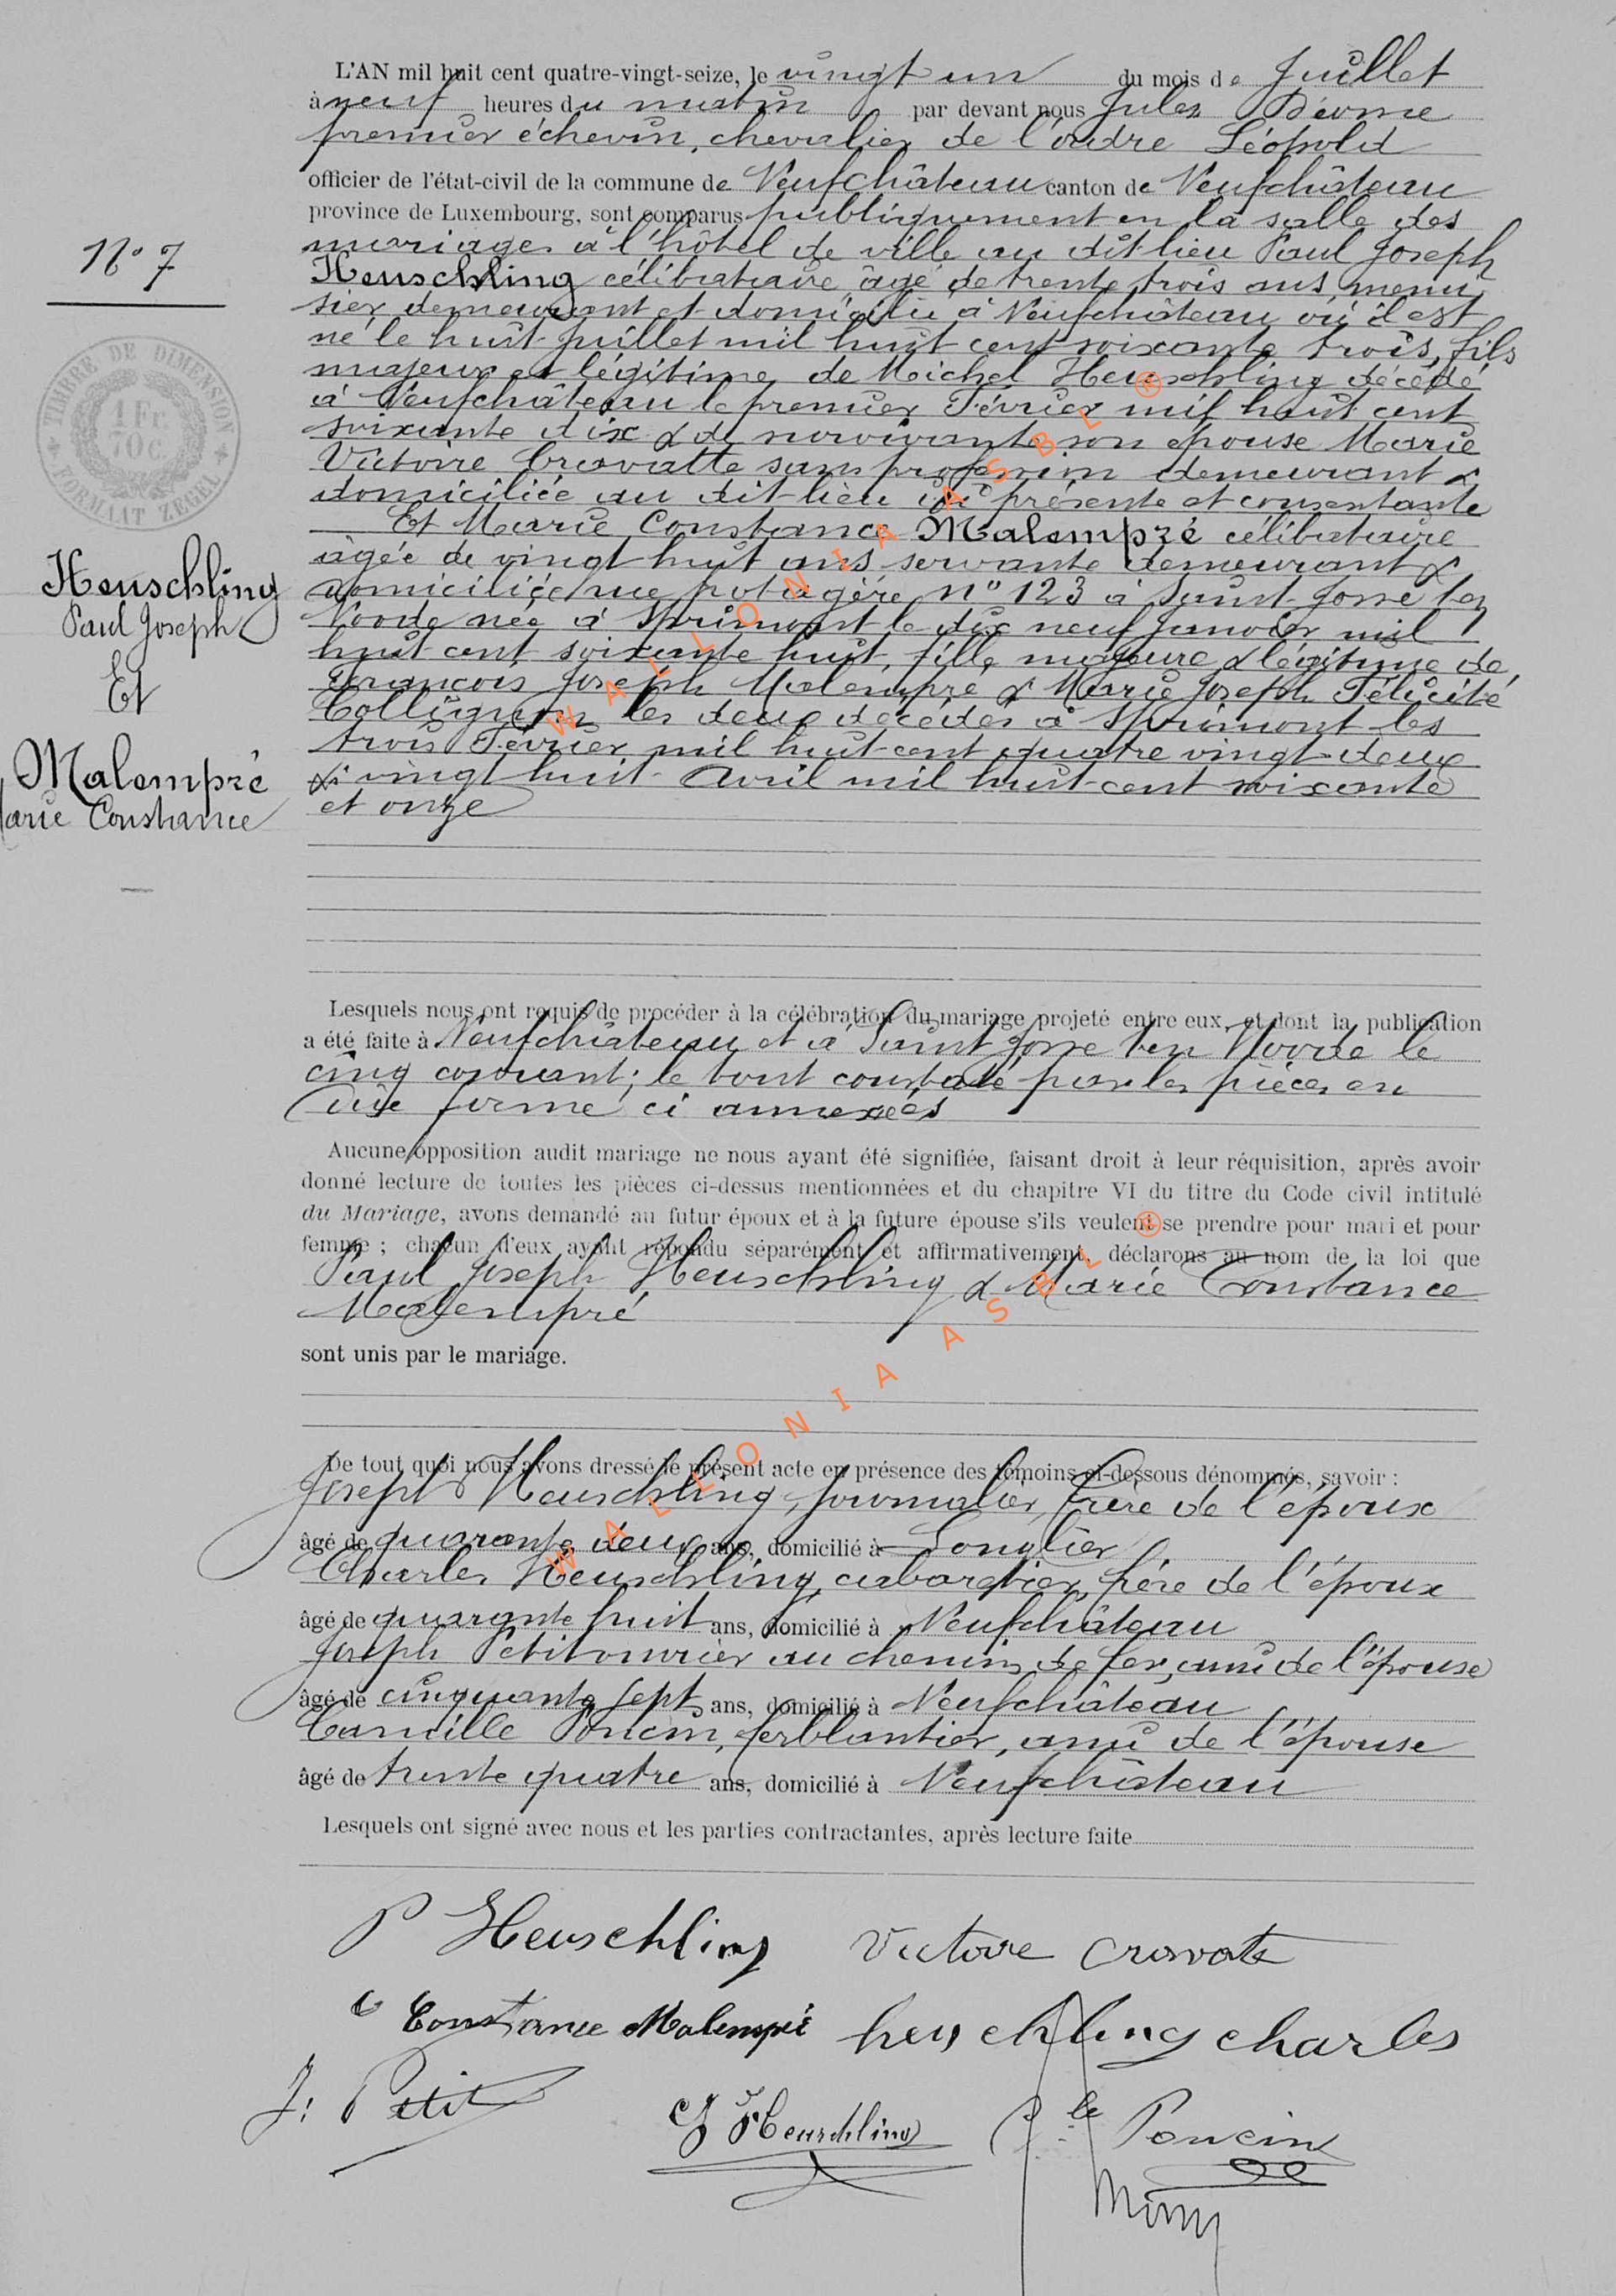 L'AN mil huit cent quatre-vingt-seize, le vingt un du mois de Juillet
à neuf heures du matin par devant nous Jules
premier échevin, chevalier de l'ordre Léopold
officier de l'état-civil de la commune de Neufchâteau canton de Neufchâteau
province de Luxembourg, sont comparus publiquement en la salle des
mariages à l'hôtel de ville au dit lieu Paul Joseph
Heuschling célibataire âgé de trente trois ans, menui
sier demeurant et domicilié à Neufchâteau où il est
né le huit Juillet mil huit cent soixante trois, fils
majeur et légitime de Michel Heuschling décédé
à Neufchâteau le premier Février mil huit cent
soixante dix & de survivante son épouse Marie
Victoire Cravatte sans profession demeurant &
domiciliée au dit lieu ici présente et consentante
Et Marie Constance Malempré célibataire
âgée de vingt huit ans servante demeurant &
domiciliée rue potagère n° 123 à Saint Josse ten
Noode née à Sprimont le dix neuf Janvier mil
huit cent soixante huit, fille majeure & légitime de
François Joseph Malempré & Marie Joseph Félicité
Collignon les deux décédés à Sprimont les
trois Février mil huit cent quatre vingt deux
& vingt huit Avril mil huit cent soixante
et onze
N° 7
TIMBRE DE DIMENSION
1 Fr.
70 c.
FORMAAT ZEGEL
Heuschling
Paul Joseph
Et
Malempré
Marie Constance
Lesquels nous ont requis de procéder à la célébration du mariage projeté entre eux, et dont la publication
a été faite à Neufchâteau et à Saint Josse ten Noode le
cinq courant; le tout constaté par les pièces en
due forme ci annexées
Aucune opposition audit mariage ne nous ayant été signifiée, faisant droit à leur réquisition, après avoir
donné lecture de toutes les pièces ci-dessus mentionnées et du chapitre VI du titre du Code civil intitulé
du Mariage, avons demandé au futur époux et à la future épouse s'ils veulent se prendre pour mari et pour
femme ; chacun d'eux ayant répondu séparément et affirmativement, déclarons au nom de la loi que
Paul Joseph Heuschling & Marie Constance
Malempré
sont unis par le mariage.
De tout quoi nous avons dressé le présent acte en présence des témoins ci-dessous dénommés, savoir :
Joseph Heuschling, journalier, frère de l'époux
âgé de quarante deux ans, domicilié à Longlier
Charles Heuschling, cabaretier, frère de l'époux
âgé de quarante huit ans, domicilié à Neufchâteau
Joseph Petit ouvrier au chemin de fer, ami de l'épouse
âgé de cinquante sept ans, domicilié à Neufchâteau
Camille Poncin, ferblantier, ami de l'épouse
âgé de trente quatre ans, domicilié à Neufchâteau
Lesquels ont signé avec nous et les parties contractantes, après lecture faite
P Heuschling Victoire Cravate
Constance Malempré heuschling charles
J. Petit J Heuschling Poncin
WALLONIA ASBL ®
WALLONIA ASBL ®